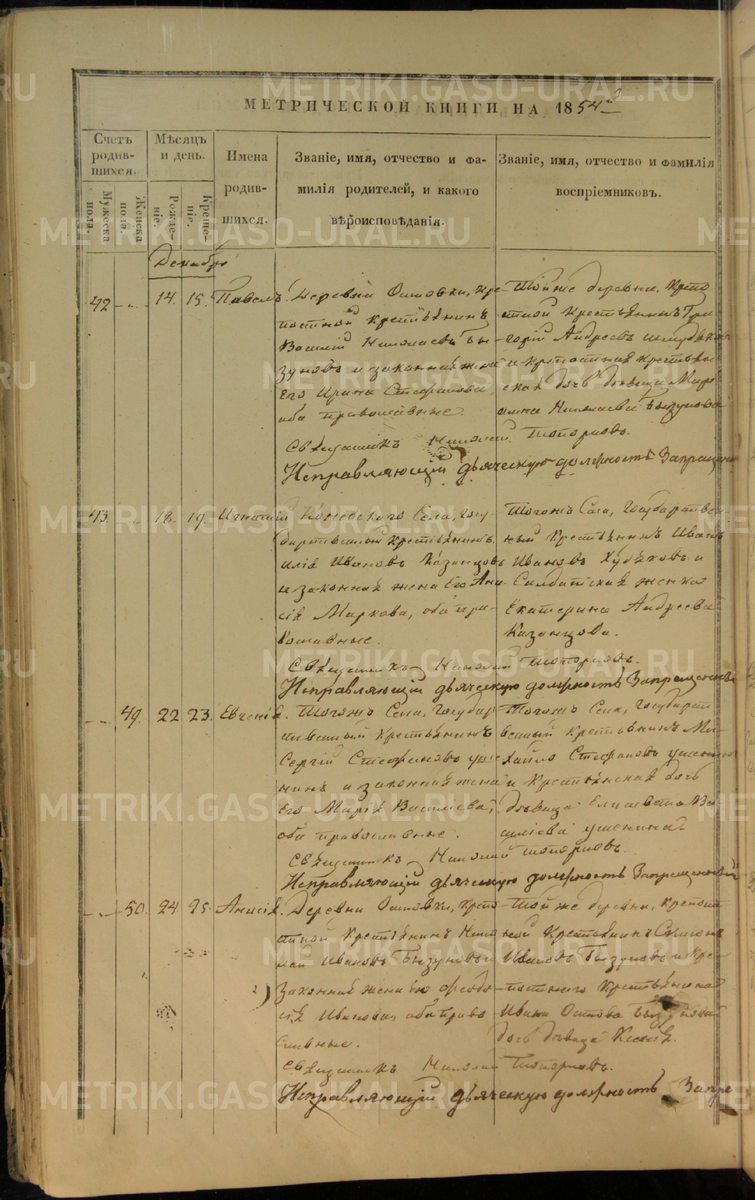 METRIKI.GASO-URAL.RU
МЕТРИЧЕСКОЙ КНИГИ НА 1854й
Счетъ родив-шихся.
Мужеска пола.
Женска пола.
Мѣсяцъ и день.
Рожде-ніе.
Креще-ніе.
Имена родив-шихся.
Званіе, имя, отчество и фа-
милія родителей, и какого
вѣроисповѣданія.
Званіе, имя, отчество и фамилія
воспріемниковъ.
Декабрь
42 14. 15. Павелъ.
Деревни кре
постной крестьянинъ
Василий Николаевъ Бы
зуновъ и законная жена
его Ирина Стефанова,
оба православные.
Тойже деревни, крепо
стной крестьянинъ Гри
горий Андреевъ
и крепостная крестьян
ская дочь девица Мар
Николаева Бызунова
Священникъ Николай Топорковъ.
Исправляющий дьяческую должность Запрещенный
43. 18. 19. Игнатий
Села, Госу
дарственный крестьянинъ
Ивановъ Казанцовъ
и законная жена его Ани
сія Маркова, оба пра
вославные.
Тогожъ Села, Государствен
ный крестьянинъ Иванъ
Ивановъ и
Салдатская женка
Екатерина Андреева
Казанцова.
Священникъ Николай Топорковъ.
Исправляющий дьяческую должность Запрещенный
49. 22 23. Евгенія.
Тогожъ Села, Государ
ственный крестьянинъ
Сергий Стефановъ
и законная жена
его Марія Василева,
оба православные.
Тогожъ Села, Государст
венный крестьянинъ Ми
хайло Стефановъ
и крестьянская дочь
девица Елисавета Ва
силіева
Священникъ Николай Топорковъ.
Исправляющий дьяческую должность Запрещенный
50. 24 25. Анисія.
Деревни крепо
стной крестьянинъ Нико
лай Ивановъ Бызуновъ и
законная жена его Федо
сія Иванова, оба право
славные.
Тойже деревни, крепост
ной крестьянинъ
Ивановъ Бызуновъ и кре
постного крестьянина
Ивана
дочь девица
Священникъ Николай Топорковъ.
Исправляющий дьяческую должность